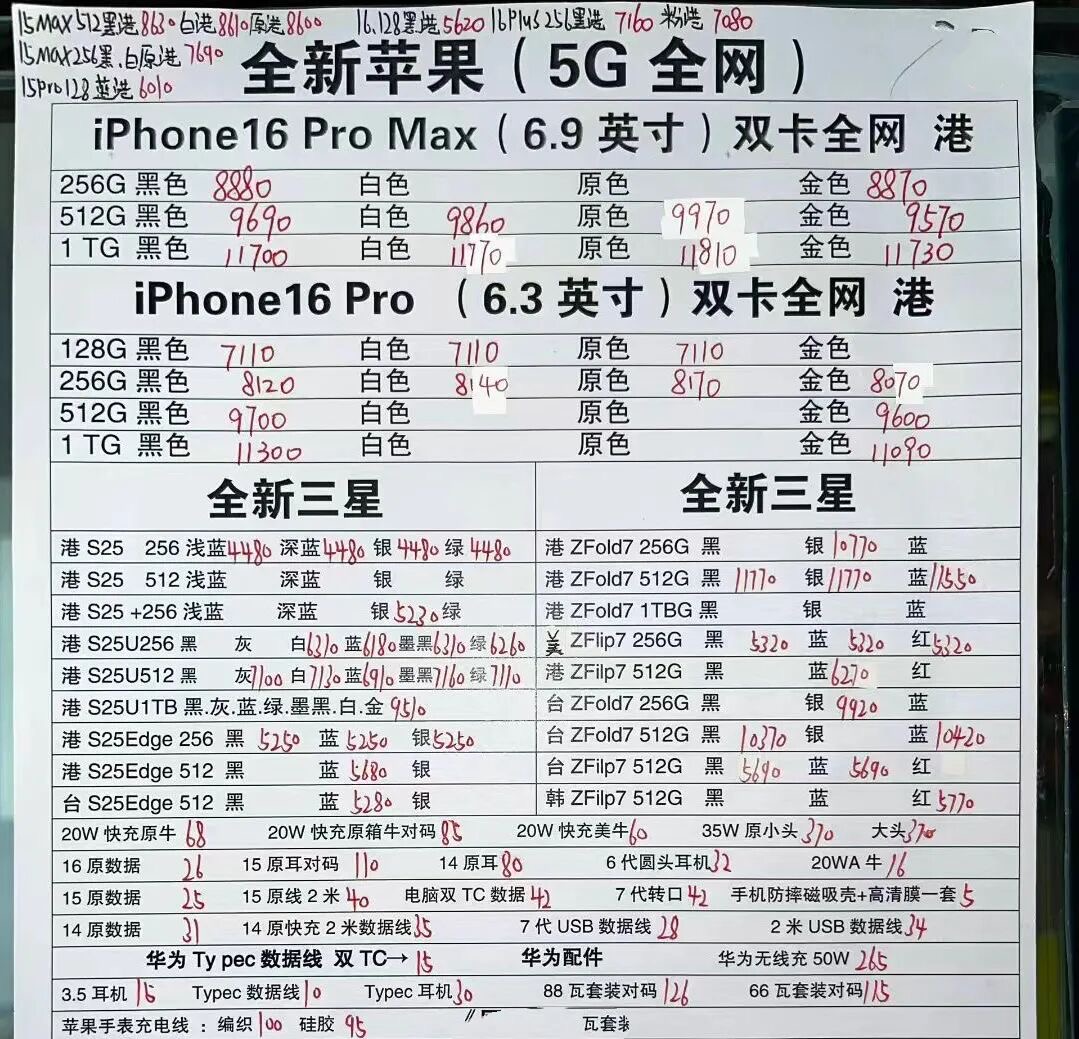 15MAX 512黑港8630 白港8610 原港8600 16.128黑港5620 16Plus 256黑港7160 粉港7080
15MAX256黑.白原港7690
15Pro128蓝港6010
全新苹果（5G 全网）
iPhone16 Pro Max（6.9 英寸）双卡全网 港
256G 黑色 8880 白色 原色 金色 8870
512G 黑色 9690 白色 9860 原色 9970 金色 9570
1 TG 黑色 11700 白色 11770 原色 11810 金色 11730
iPhone16 Pro （6.3 英寸）双卡全网 港
128G 黑色 7110 白色 7110 原色 7110 金色
256G 黑色 8120 白色 8140 原色 8170 金色 8070
512G 黑色 9700 白色 原色 金色 9600
1 TG 黑色 11300 白色 原色 金色 11090
全新三星 全新三星
港 S25 256 浅蓝4480 深蓝4480 银4480 绿 4480 港 ZFold7 256G 黑 银10770 蓝
港 S25 512 浅蓝 深蓝 银 绿 港 ZFold7 512G 黑 11770 银11770 蓝11550
港 S25 +256 浅蓝 深蓝 银5230绿 港 ZFold7 1TBG 黑 银 蓝
港 S25U256 黑 灰 白6310 蓝6180墨黑6310 绿6260 美 ZFlip7 256G 黑 5320 蓝 5320 红5320
港 S25U512 黑 灰7100 白7130蓝6910墨黑7160 绿7110 港 ZFlip7 512G 黑 蓝6270 红
港 S25U1TB 黑.灰.蓝.绿.墨黑.白.金 9510 台 ZFold7 256G 黑 银 9920 蓝
港 S25Edge 256 黑 5250 蓝 5250 银5250 台 ZFold7 512G 黑 10370 银 蓝10420
港 S25Edge 512 黑 蓝 5680 银 台 ZFilp7 512G 黑 5690 蓝 5690 红
台 S25Edge 512 黑 蓝 5280 银 韩 ZFilp7 512G 黑 蓝 红5770
20W 快充原牛 68 20W 快充原箱牛对码85 20W 快充美牛60 35W 原小头 370 大头370
16 原数据 26 15 原耳对码 110 14 原耳80 6 代圆头耳机32 20WA 牛 16
15 原数据 25 15 原线 2 米 40 电脑双 TC 数据 42 7 代转口 42 手机防摔磁吸壳+高清膜一套 5
14 原数据 31 14 原快充 2 米数据线35 7 代 USB 数据线 28 2 米 USB 数据线34
华为 Ty pec 数据线 双 TC→ 15 华为配件 华为无线充 50W 265
3.5 耳机 15 Typec 数据线10 Typec 耳机30 88 瓦套装对码126 66 瓦套装对码115
苹果手表充电线 ：编织100 硅胶 95 瓦套